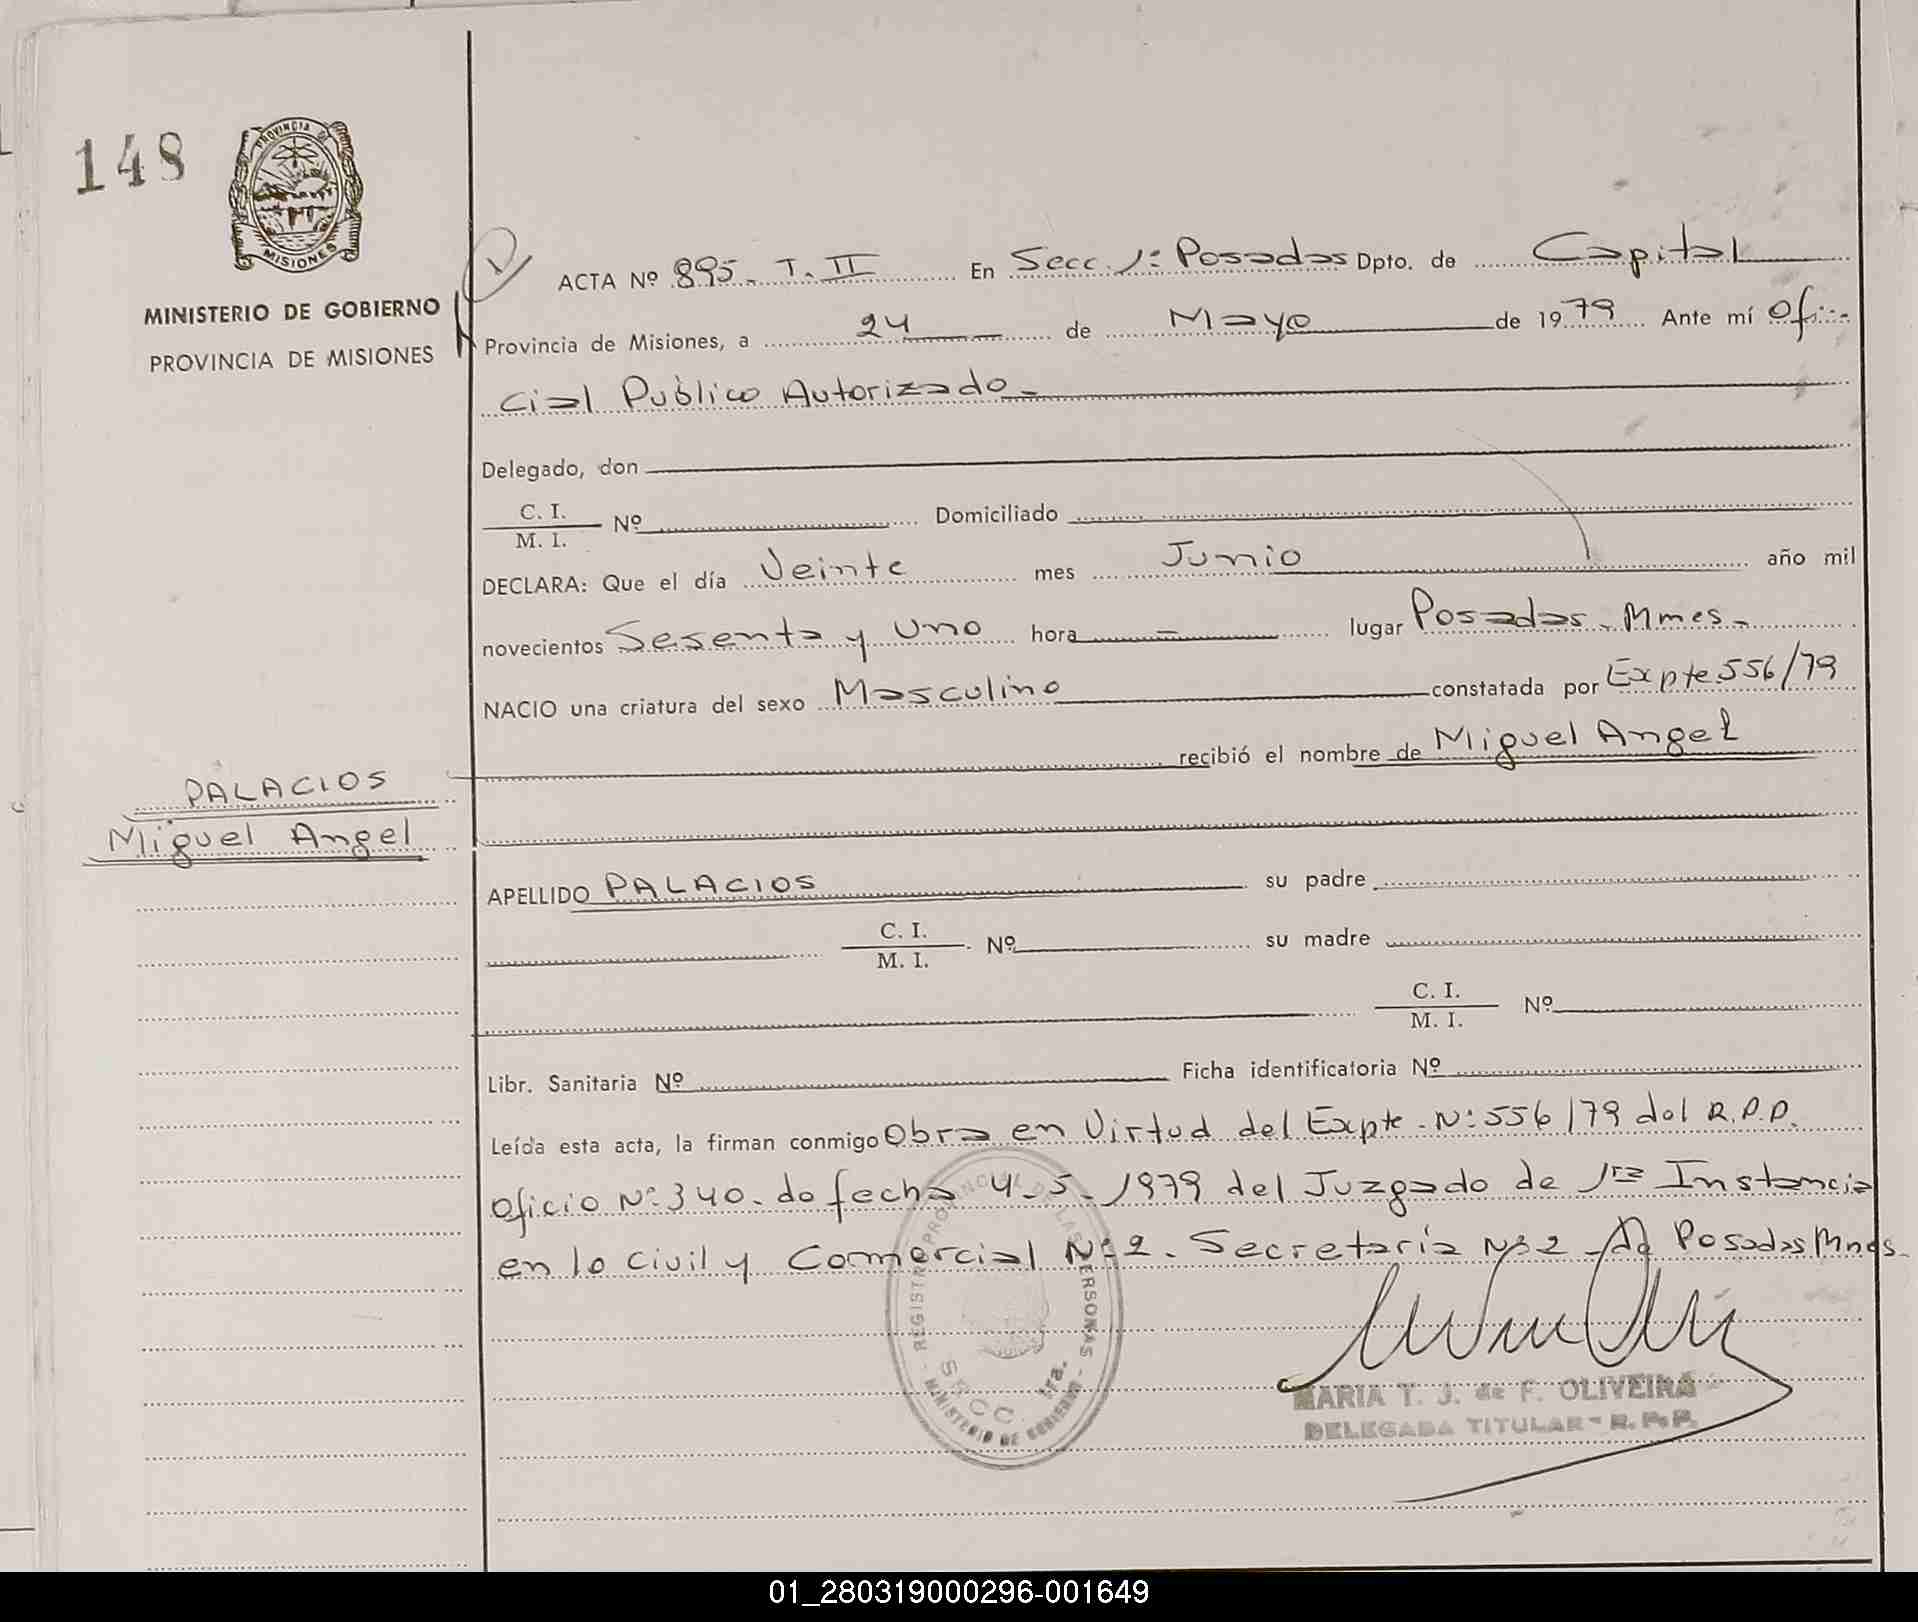 148
PROVINCIA DE
MISIONES
MINISTERIO DE GOBIERNO
PROVINCIA DE MISIONES
ACTA Nº 895. T. II En Secc. 1ª Posadas Dpto. de Capital
Provincia de Misiones, a 24 de Mayo de 1979 Ante mí Ofi-
cial Público Autorizado.
Delegado, don
C. I.
M. I. Nº Domiciliado
DECLARA: Que el día Veinte mes Junio año mil
novecientos Sesenta y Uno hora - lugar Posadas. Mnes.
NACIO una criatura del sexo Masculino constatada por Expte 556/79
recibió el nombre de Miguel Angel
PALACIOS
Miguel Angel
APELLIDO PALACIOS su padre
C. I.
M. I. Nº su madre
C. I.
M. I. Nº
Libr. Sanitaria Nº Ficha identificatoria Nº
Leída esta acta, la firman conmigo Obra en Virtud del Expte. Nº 556/79 del R.P.P.
Oficio Nº 340. de fecha 4.5.1979 del Juzgado de 1ra Instancia
en lo Civil y Comercial Nº 2. Secretaría Nº 2 de Posadas Mnes.
REGISTRO PROVINCIAL DE LAS PERSONAS
SECC. 1ra.
MINISTERIO DE GOBIERNO
MARIA T. J. de F. OLIVEIRA
DELEGADA TITULAR - R. P. P.
01_280319000296-001649